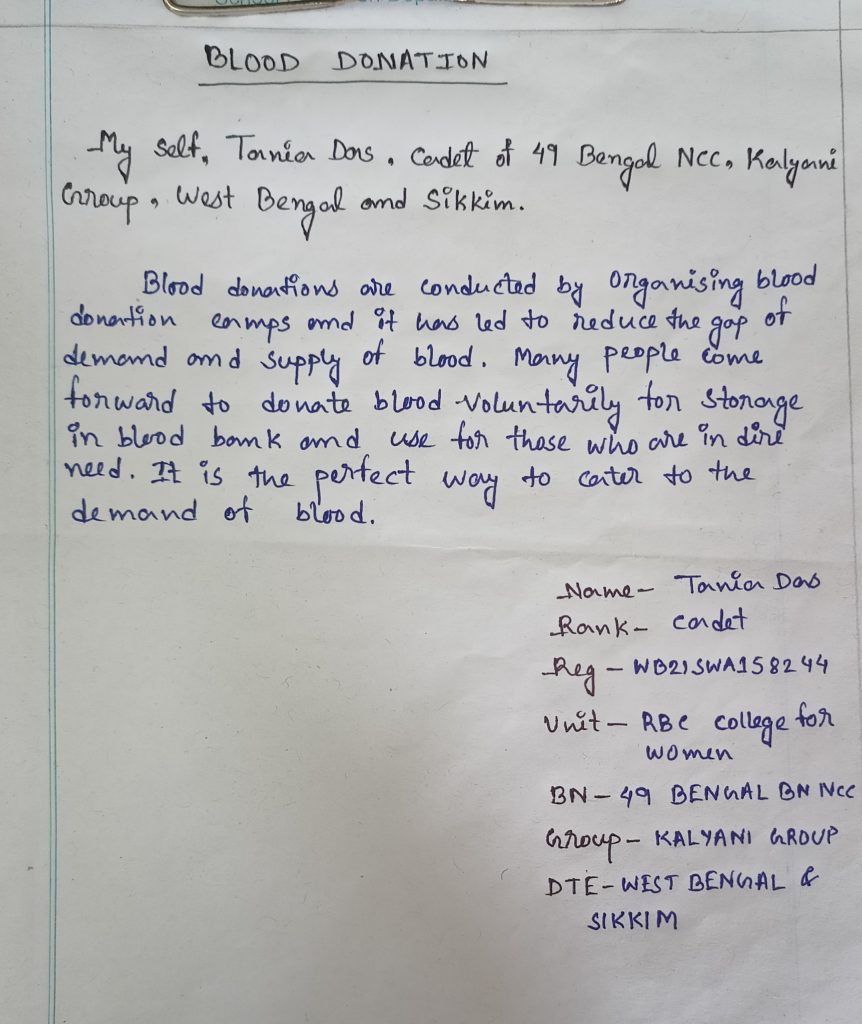 BLOOD DONATION
My self, Tania Das, Cadet of 49 Bengal NCC, Kalyani
Group, West Bengal and Sikkim.
Blood donations are conducted by organising blood
donation camps and it has led to reduce the gap of
demand and supply of blood. Many people come
forward to donate blood voluntarily for storage
in blood bank and use for those who are in dire
need. It is the perfect way to cater to the
demand of blood.
Name - Tania Das
Rank - Cadet
Reg - WB21SWA158244
Unit - RBC college for
women
BN - 49 BENGAL BN NCC
Group - KALYANI GROUP
DTE - WEST BENGAL &
SIKKIM